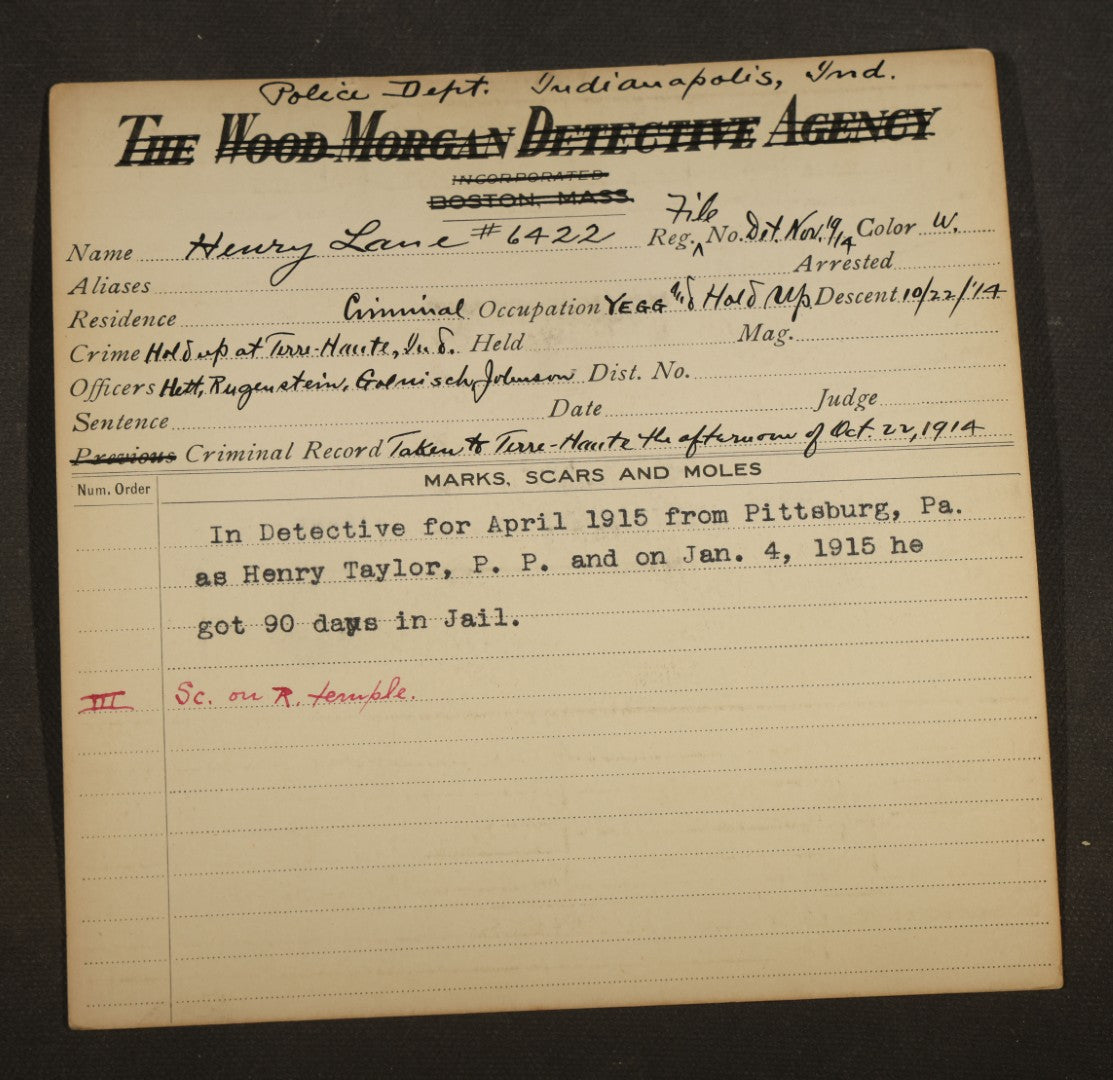 Police Dept. Indianapolis, Ind.
THE WOOD MORGAN DETECTIVE AGENCY
INCORPORATED
BOSTON, MASS.
Name Henry Lane #6422 Reg. File No. Det. Nov. '9/14 Color W.
Aliases Arrested
Residence Criminal Occupation YEGG and Hold Up Descent 10/22/'14
Crime Hold up at Terre-Haute, Ind. Held Mag.
Officers Hett, Rugenstein, Golnisch, Johnson Dist. No.
Sentence Date Judge
Previous Criminal Record Taken to Terre-Haute the afternoon of Oct. 22, 1914
Num. Order MARKS, SCARS AND MOLES
In Detective for April 1915 from Pittsburg, Pa.
as Henry Taylor, P. P. and on Jan. 4, 1915 he
got 90 days in Jail.
III Sc. on R. temple.